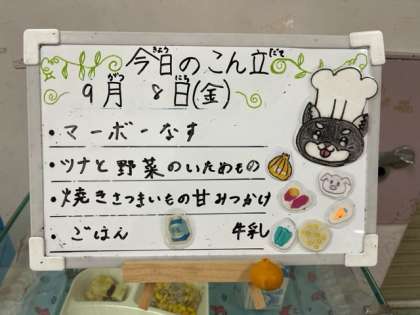 今日のこん立
9月 8日(金)
・マーボーなす
・ツナと野菜のいためもの
・焼きさつまいもの甘みつかけ
・ごはん 牛乳